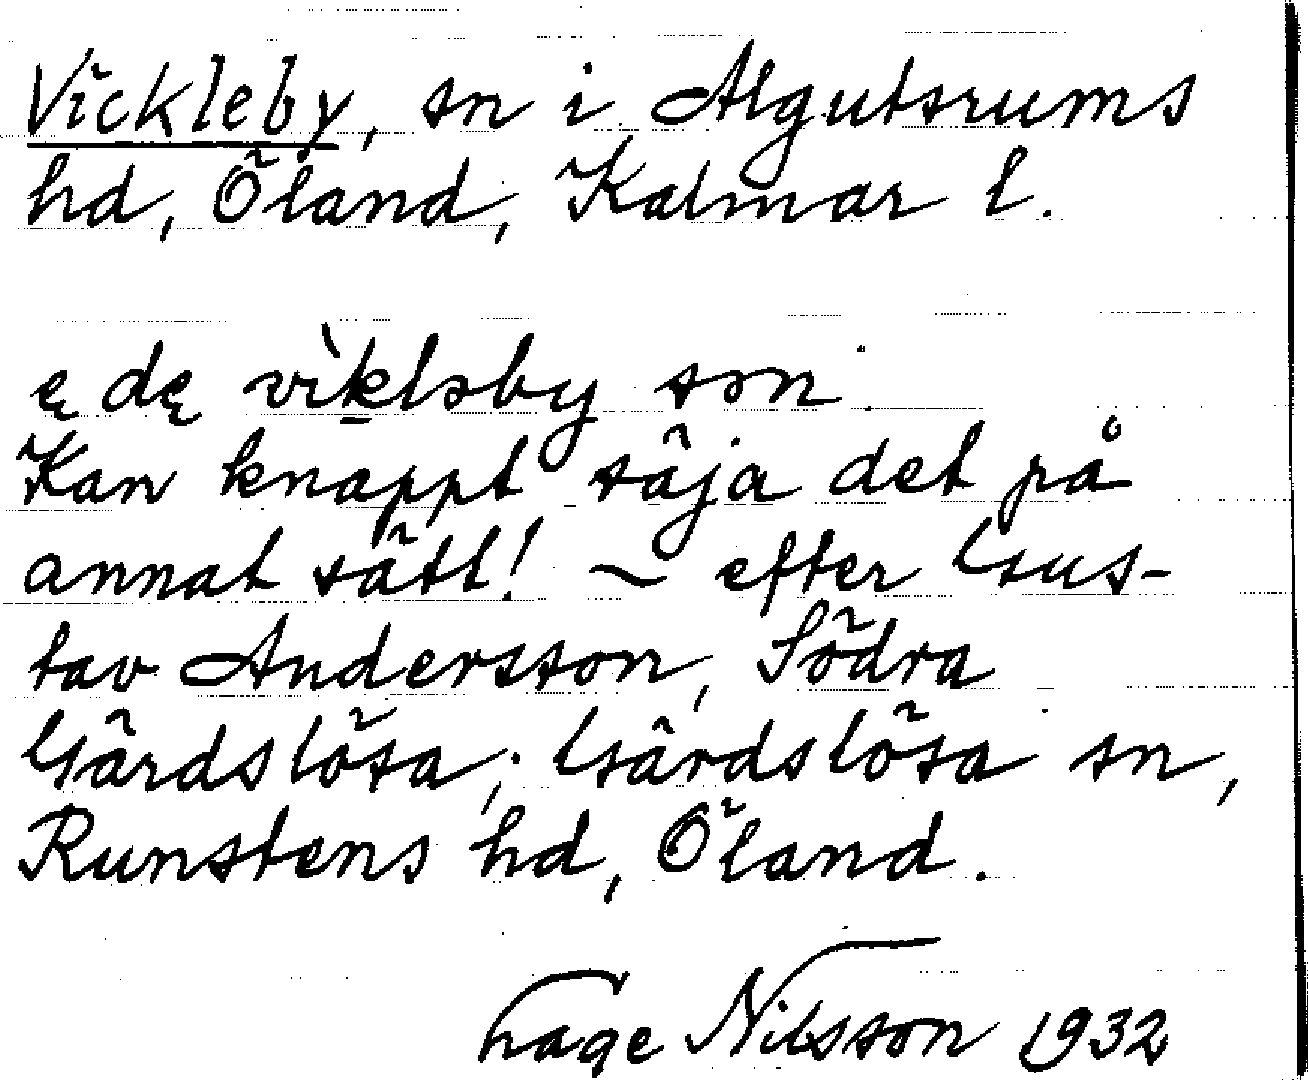 Vickleby, sn i Algutsrums
hd, Öland, Kalmar l.
ę dę vìklsby sɔn
Kan knappt säja det på
annat sätt! ~ efter Gus-
tav Andersson, Södra
Gärdslösa, Gärdslösa sn,
Runstens hd, Öland.
Hage Nilsson 1932